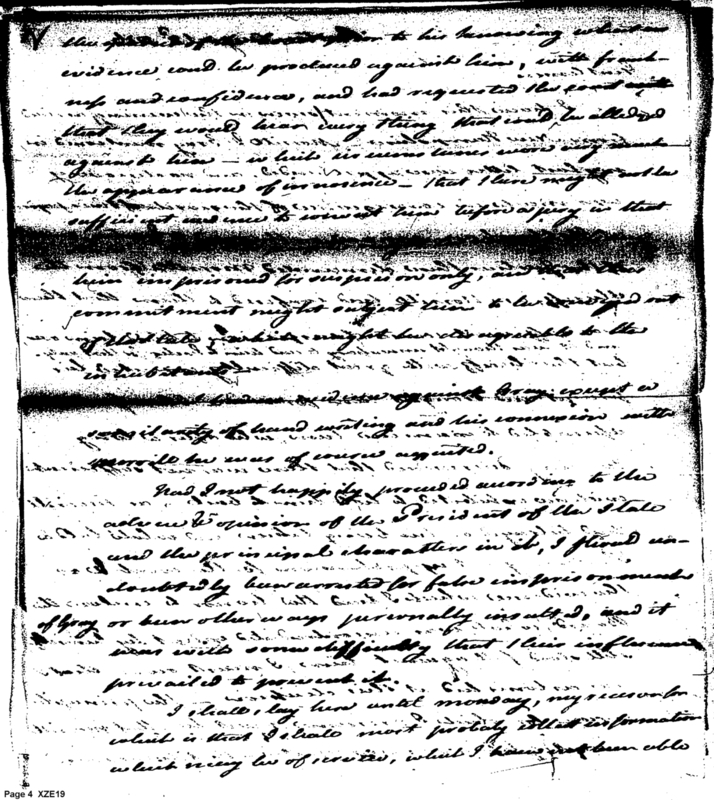 the of the to his knowing what
evidence could be produced against him, with frank-
ness and confidence, and had requested the court
that they would hear every thing that could be alledged
against him — which circumstances wore very much
the appearance of innocence — that there might not be
sufficient evidence to convict him before a jury in that
him imprisoned for suspicion only, and that this
commitment might subject him to be out
of the State, which might be disagreeable to the
inhabitants
evidence against Gray except a
similarity of hand writing and his connexion with
he was of course acquited.
Had I not happily proceeded according to the
advice & opinion of the President of the State
and the principal characters in it, I should un-
doubtedly been arrested for false imprisonment
of Gray or been other ways personally insulted, and it
was with some difficulty that their influence
prevailed to prevent it.
I shall lay here until monday, my reason for
which is that I shall most probably collect information
which may be of service, what I have not been able
Page 4 XZE19